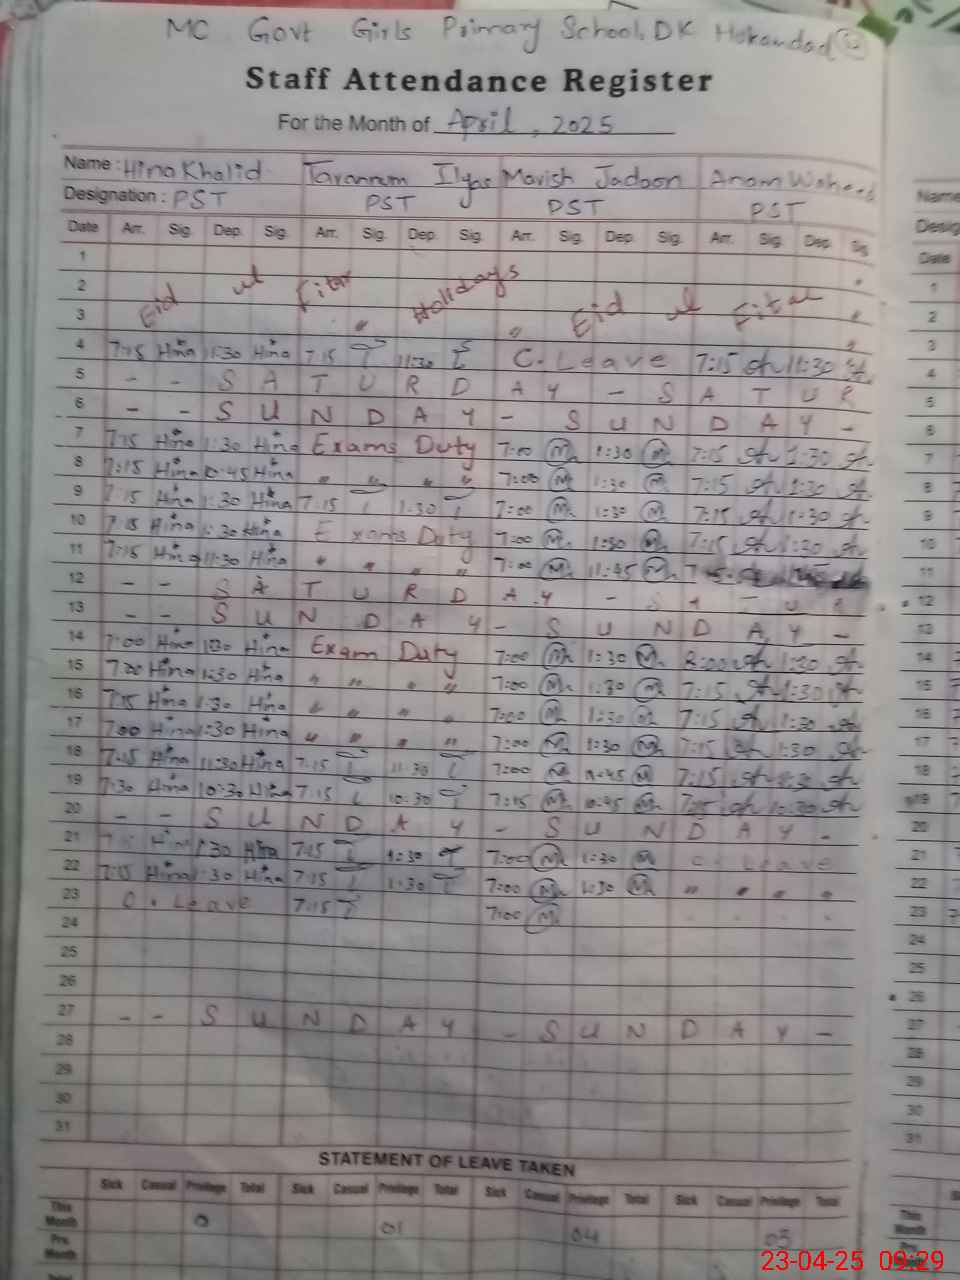 MC Govt Girls Primary School, DK
Staff Attendance Register
For the Month of April, 2025
Name : Hina Khalid Tarannum Ilyas Mavish Jadoon Anam Waheed
Designation : PST PST PST PST
Date Arr. Sig. Dep. Sig. Arr. Sig. Dep. Sig. Arr. Sig. Dep. Sig. Arr. Sig. Dep. Sig
1
2 Eid ul Fitar Holidays Eid ul Fitar
3 " "
4 7:15 Hina 11:30 Hina 7:15 T 11:30 T C. Leave 7:15 11:30
5 - - S A T U R D A Y - S A T U R
6 - - S U N D A Y - S U N D A Y -
7 7:15 Hina 1:30 Hina Exams Duty 7:00 M 1:30 M 7:15 1:30
8 7:15 Hina 10:45 Hina " " " " 7:00 M 1:30 M 7:15 1:30
9 7:15 Hina 1:30 Hina 7:15 T 1:30 T 7:00 M 1:30 M 7:15 1:30
10 7:15 Hina 1:30 Hina Exams Duty 7:00 M 1:30 M 7:15 1:30
11 7:15 Hina 11:30 Hina " " " " 7:00 M 11:45 M
12 - - S A T U R D A Y - S A T U R
13 - - S U N D A Y - S U N D A Y -
14 7:00 Hina 1:30 Hina Exam Duty 7:00 M 1:30 M 8:00 1:30
15 7:00 Hina 1:30 Hina " " " " 7:00 M 1:30 M 7:15 1:30
16 7:15 Hina 1:30 Hina " " " " 7:00 M 1:30 M 7:15 1:30
17 7:00 Hina 1:30 Hina " " " " 7:00 M 1:30 M 7:15 1:30
18 7:15 Hina 11:30 Hina 7:15 T 11:30 T 7:00 M 11:45 M 7:15
19 7:30 Hina 10:30 Hina 7:15 T 10:30 T 7:15 M 10:45 M 7:15 10:30
20 - - S U N D A Y - S U N D A Y -
21 Hina 1:30 Hina 7:15 T 1:30 T 7:00 M 1:30 M C. Leave
22 7:15 Hina 1:30 Hina 7:15 T 1:30 T 7:00 M 1:30 M " " " "
23 C. Leave 7:15 T 7:00 M
24
25
26
27 - - S U N D A Y - S U N D A Y -
28
29
30
31
STATEMENT OF LEAVE TAKEN
Sick Casual Privilege Total Sick Casual Privilege Total Sick Casual Privilege Total Sick Casual Privilege Total
This Month 0 01 04 05
Pre. Month
Name
Desig
Date
1
2
3
4
5
6
7
8
9
10
11
12
13
14
15
16
17
18
19
20
21
22
23
24
25
26
27
28
29
30
31
This Month
Pre. Month
23-04-25 09:29